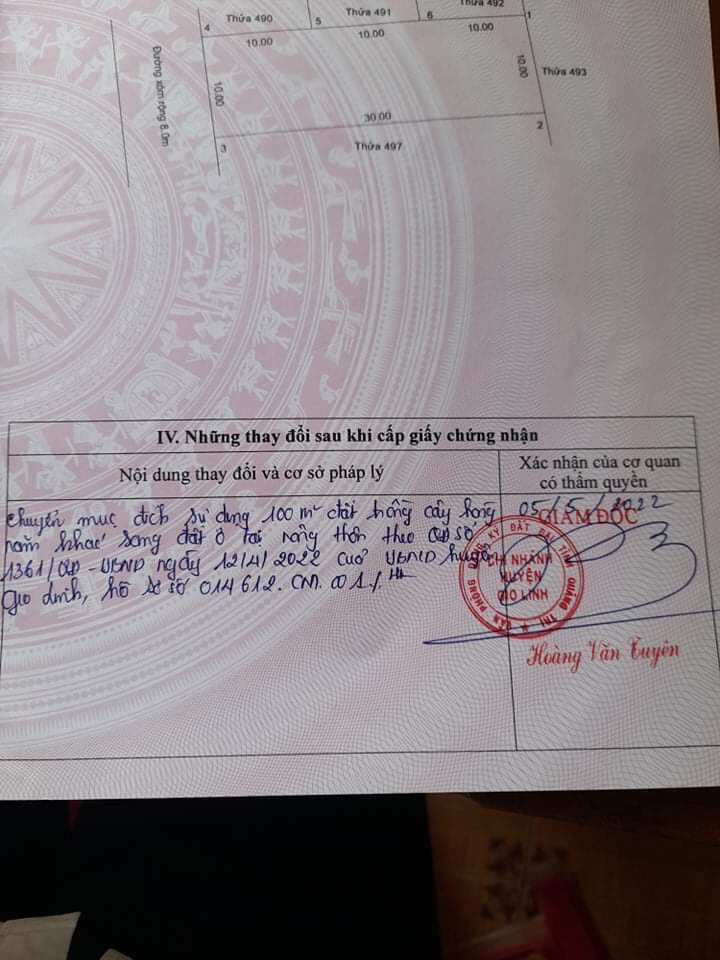 Thửa 490
Thửa 491
Thửa 492
4
5
6
1
10.00
10.00
10.00
Đường xóm rộng 8.0m
10.00
10.00
Thửa 493
30.00
3
2
Thửa 497
IV. Những thay đổi sau khi cấp giấy chứng nhận
Nội dung thay đổi và cơ sở pháp lý
Xác nhận của cơ quan
có thẩm quyền
Chuyển mục đích sử dụng 100 m² đất trồng cây hàng
năm khác sang đất ở tại nông thôn theo QĐ số
1361/QĐ-UBND ngày 12/4/2022 của UBND huyện
Gio Linh, hồ sơ số 014612.CM.001./.
05/5/2022
GIÁM ĐỐC
VĂN PHÒNG ĐĂNG KÝ ĐẤT ĐAI TỈNH QUẢNG TRỊ
CHI NHÁNH
HUYỆN
GIO LINH
Hoàng Văn Tuyên